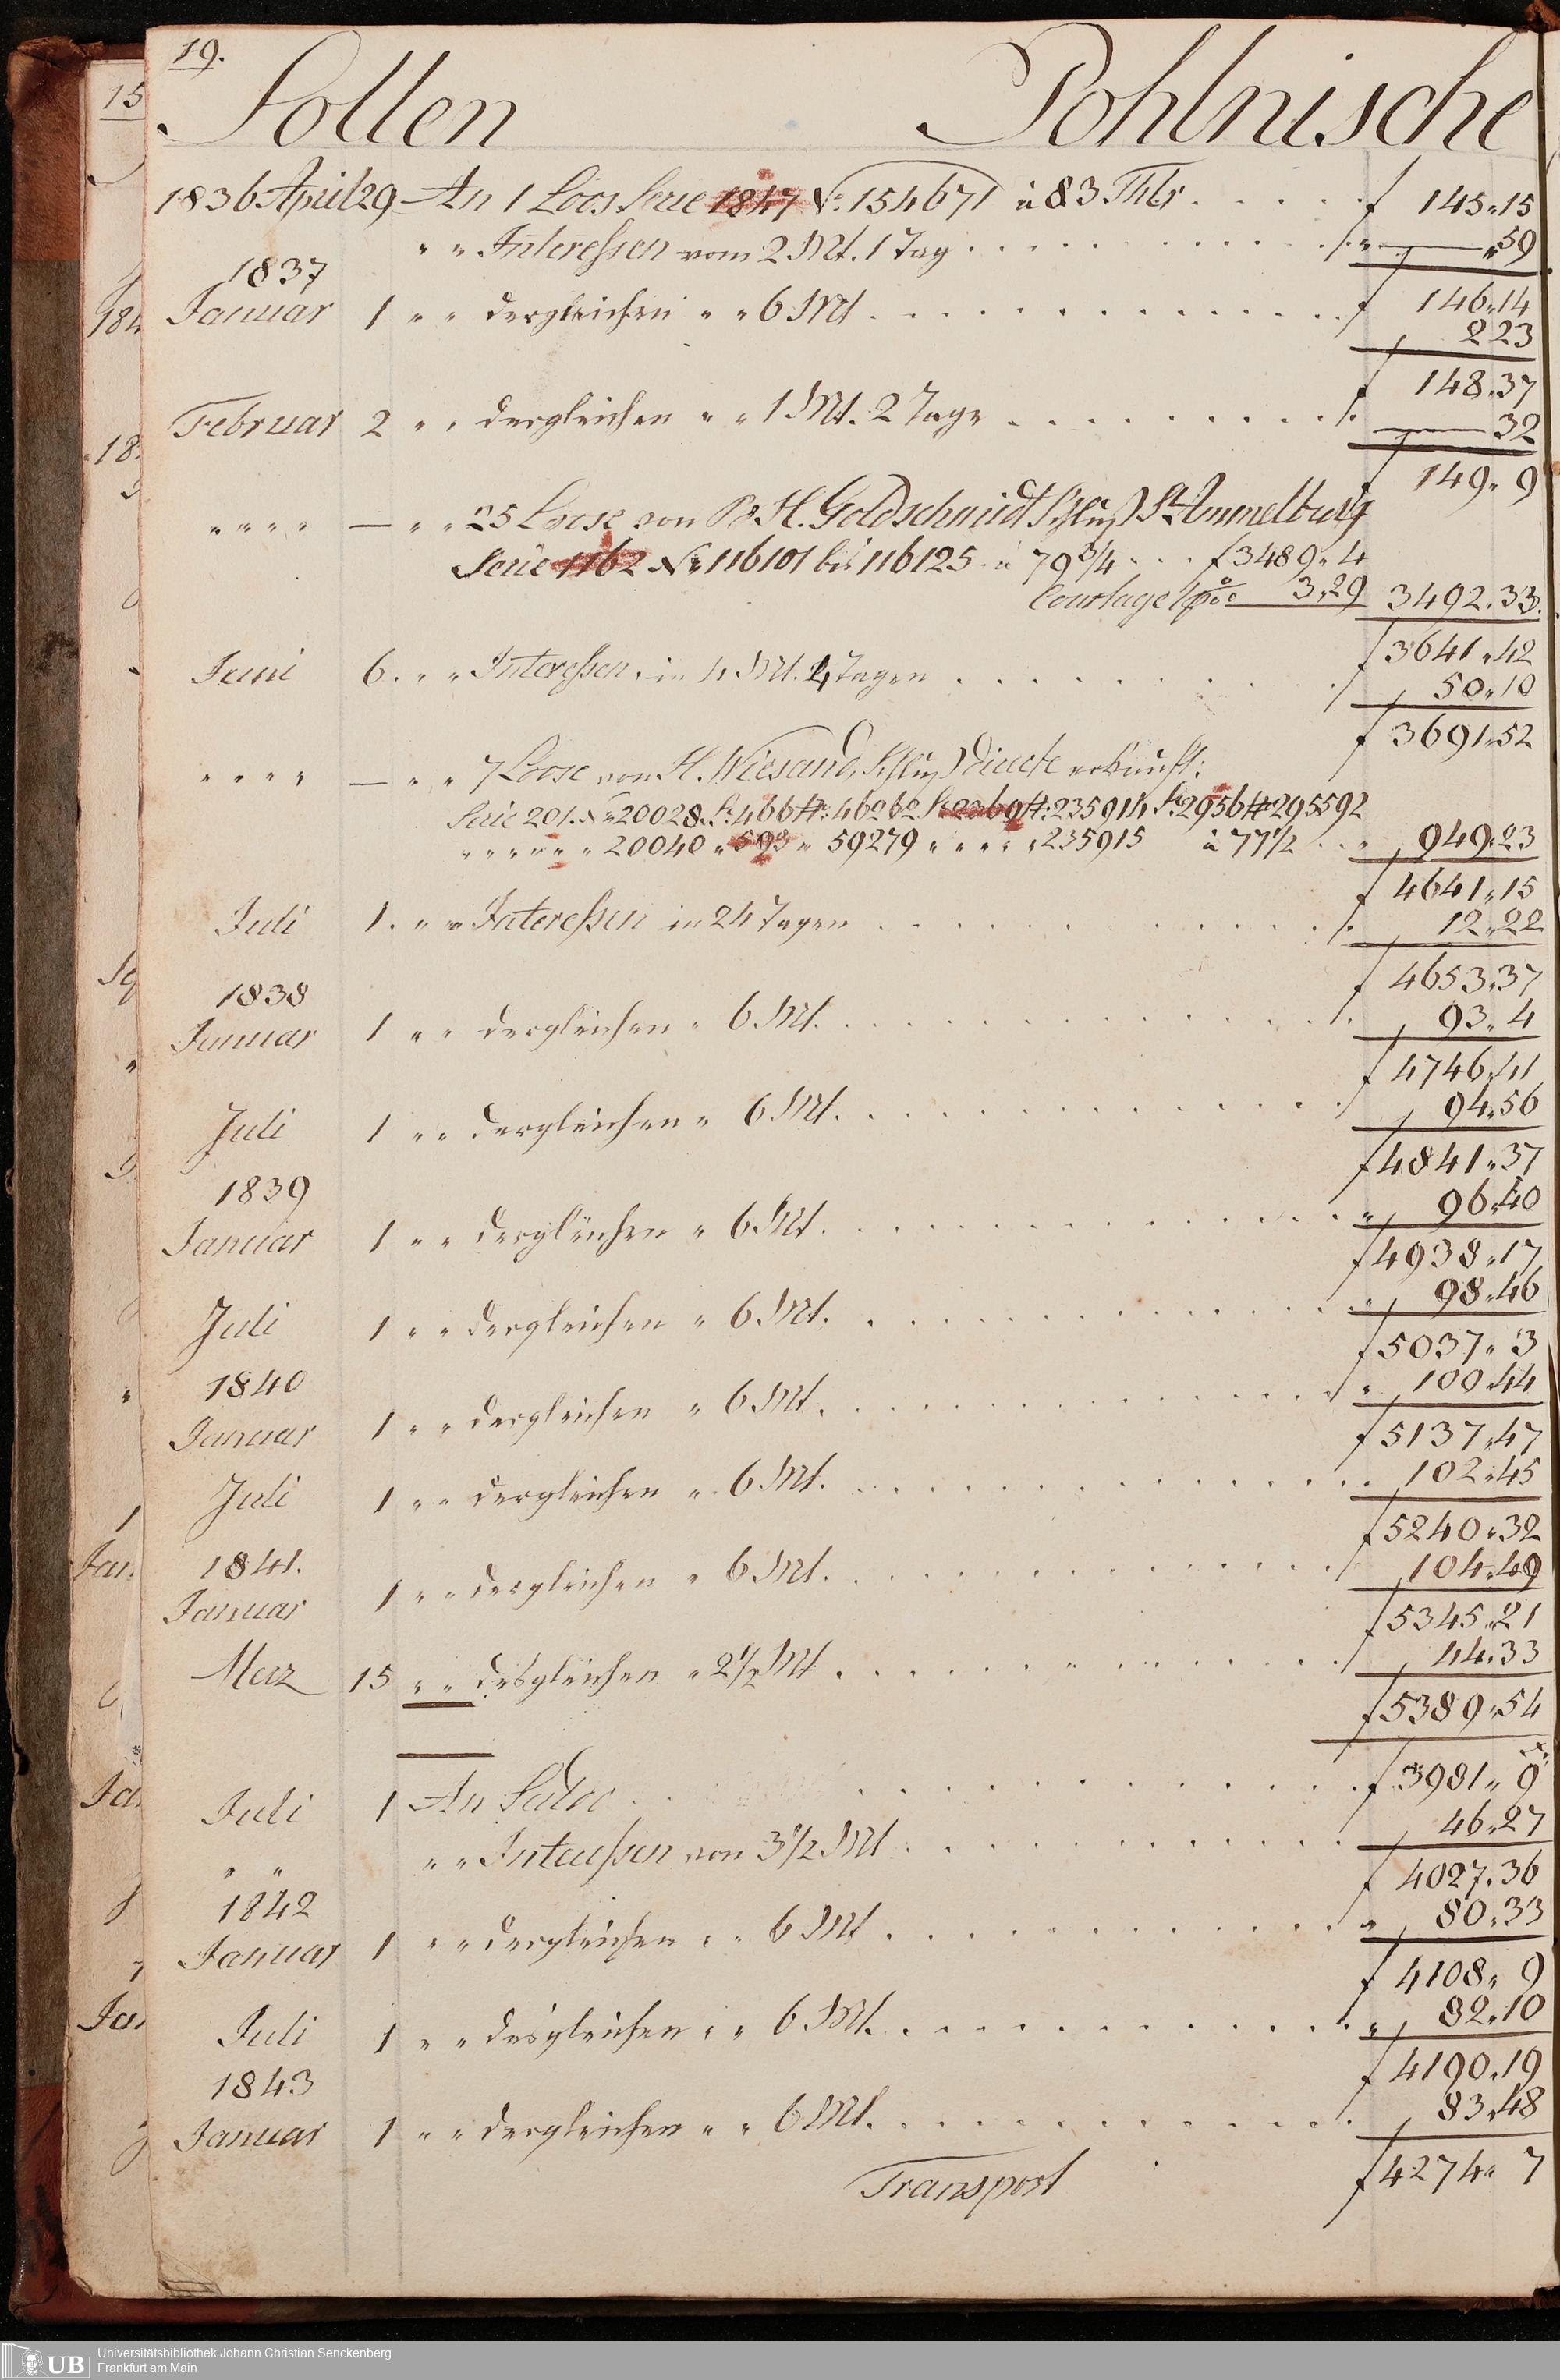 19.
Sollen Pohlnische
1836 April 29 An 1 Loos Serie 1847 No. 154671 à 83 Thlr . . . . . f 145 " 15
" " Interessen vom 2 Mt. 1 Tag . . . . . " — " 59
f 146 " 14
1837
Januar 1 " " dergleichen " " 6 Mt . . . . . 2 23
f 148 " 37
Februar 2 " " dergleichen " " 1 Mt. 2 Tage . . . . . — 32
f 149 " 9
" " " " — " " 25 Loose von B. H. Goldschmidt
Serie 1162 No 116101 bis 116125 à 79 3/4 . . . f 3489 " 4
Courtage 3 " 29 3492 . 33.
f 3641 " 42
Juni 6. " " Interessen in 4 Mt. 4 Tagen . . . . . 50 " 10
f 3691 " 52
" " " " — " " 7 Loose von H. Wiesand, directe erkauft:
Serie 201. No 20028. Sr. 466 #: 46060 Sr. 2360 #: 235914 Sr. 2956 # 295592
" " " " " 20040 " 593 " 59279 " " " " 235915 à 77 1/2 . . " 949 " 23
f 4641 " 15
Juli 1. " " Interessen in 24 Tagen . . . . . 12 " 22
f 4653 " 37
1838
Januar 1 " " dergleichen " 6 Mt. . . . . . 93 " 4
f 4746 " 41
Juli 1 " " dergleichen " 6 Mt. . . . . . 94 " 56
f 4841 " 37
1839
Januar 1 " " dergleichen " 6 Mt. . . . . . " 96 " 40
f 4938 " 17
Juli 1 " " dergleichen " 6 Mt. . . . . . " 98 " 46
f 5037 " 3
1840
Januar 1 " " dergleichen " 6 Mt. . . . . . " 100 " 44
f 5137 " 47
Juli 1 " " dergleichen " 6 Mt. . . . . . 102 " 45
f 5240 " 32
1841.
Januar 1 " " dergleichen " 6 Mt. . . . . . 104 " 49
f 5345 " 21
Merz 15 " " desgleichen " 2 1/2 Mt . . . . . 44 " 33
f 5389 " 54
Juli 1 An Saldo . . . . . f 3981 " 9
" " " " Interessen von 3 1/2 Mt . . . . . 46 " 27
f 4027 " 36
1842
Januar 1 " " dergleichen " " 6 Mt . . . . . " 80 " 33
f 4108 " 9
Juli 1 " " desgleichen " " 6 Mt. . . . . . " 82 " 10
f 4190 " 19
1843
Januar 1 " " dergleichen " " 6 Mt. . . . . . 83 " 48
Transport f 4274 " 7
UB Universitätsbibliothek Johann Christian Senckenberg
Frankfurt am Main